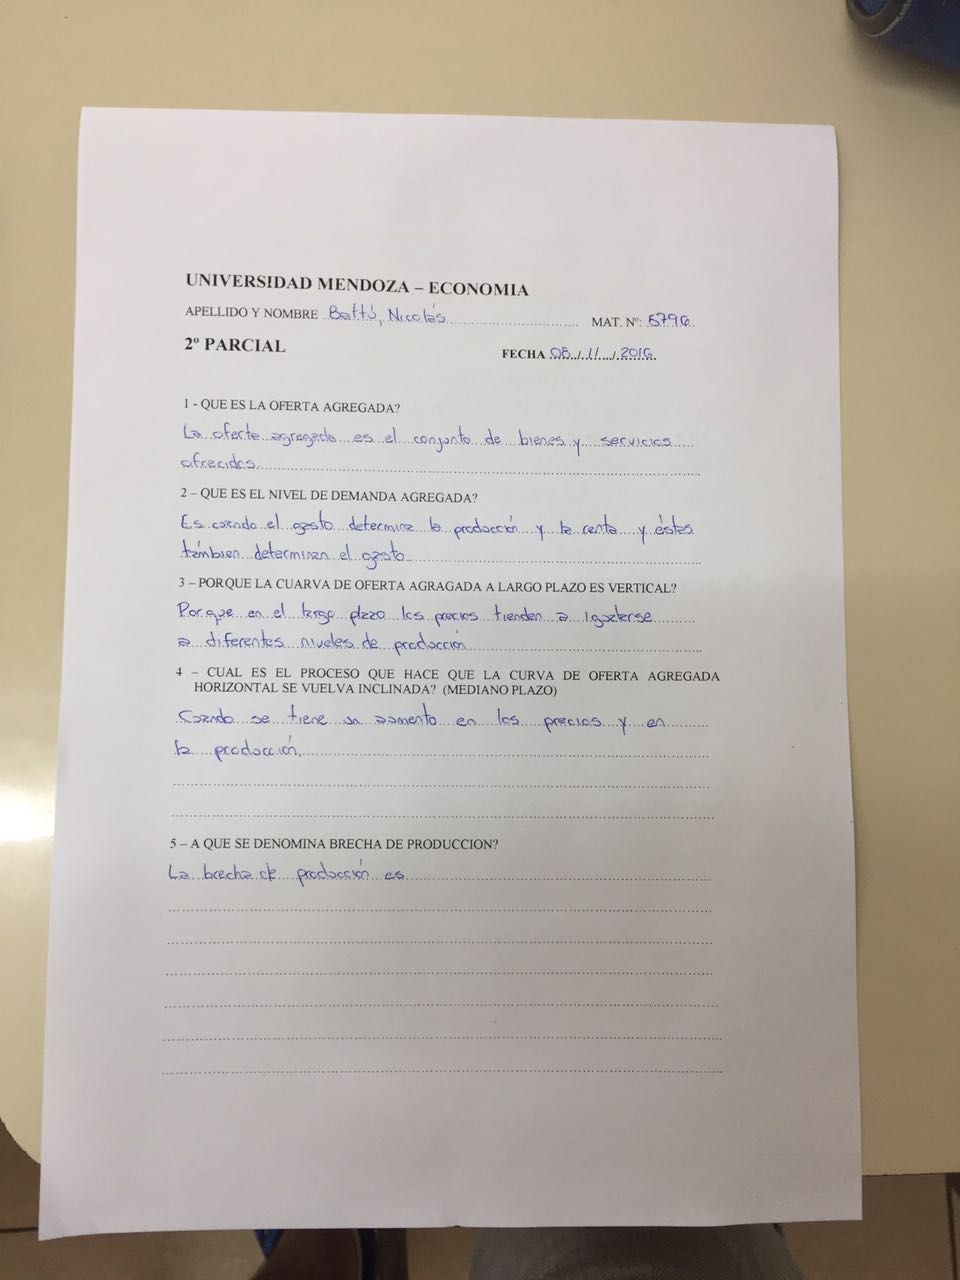 UNIVERSIDAD MENDOZA – ECONOMIA
APELLIDO Y NOMBRE Battú, Nicolás MAT. Nº: 5796
2º PARCIAL FECHA 08/11/2016
1 - QUE ES LA OFERTA AGREGADA?
La oferta agregada es el conjunto de bienes y servicios
ofrecidos.
2 – QUE ES EL NIVEL DE DEMANDA AGREGADA?
Es cuando el gasto determina la producción y la renta y éstas
támbien determinan el gasto.
3 – PORQUE LA CUARVA DE OFERTA AGRAGADA A LARGO PLAZO ES VERTICAL?
Porque en el largo plazo los precios tienden a igualarse
a diferentes niveles de producción
4 – CUAL ES EL PROCESO QUE HACE QUE LA CURVA DE OFERTA AGREGADA
HORIZONTAL SE VUELVA INCLINADA? (MEDIANO PLAZO)
Cuando se tiene un aumento en los precios y en
la producción.
5 – A QUE SE DENOMINA BRECHA DE PRODUCCION?
La brecha de producción es